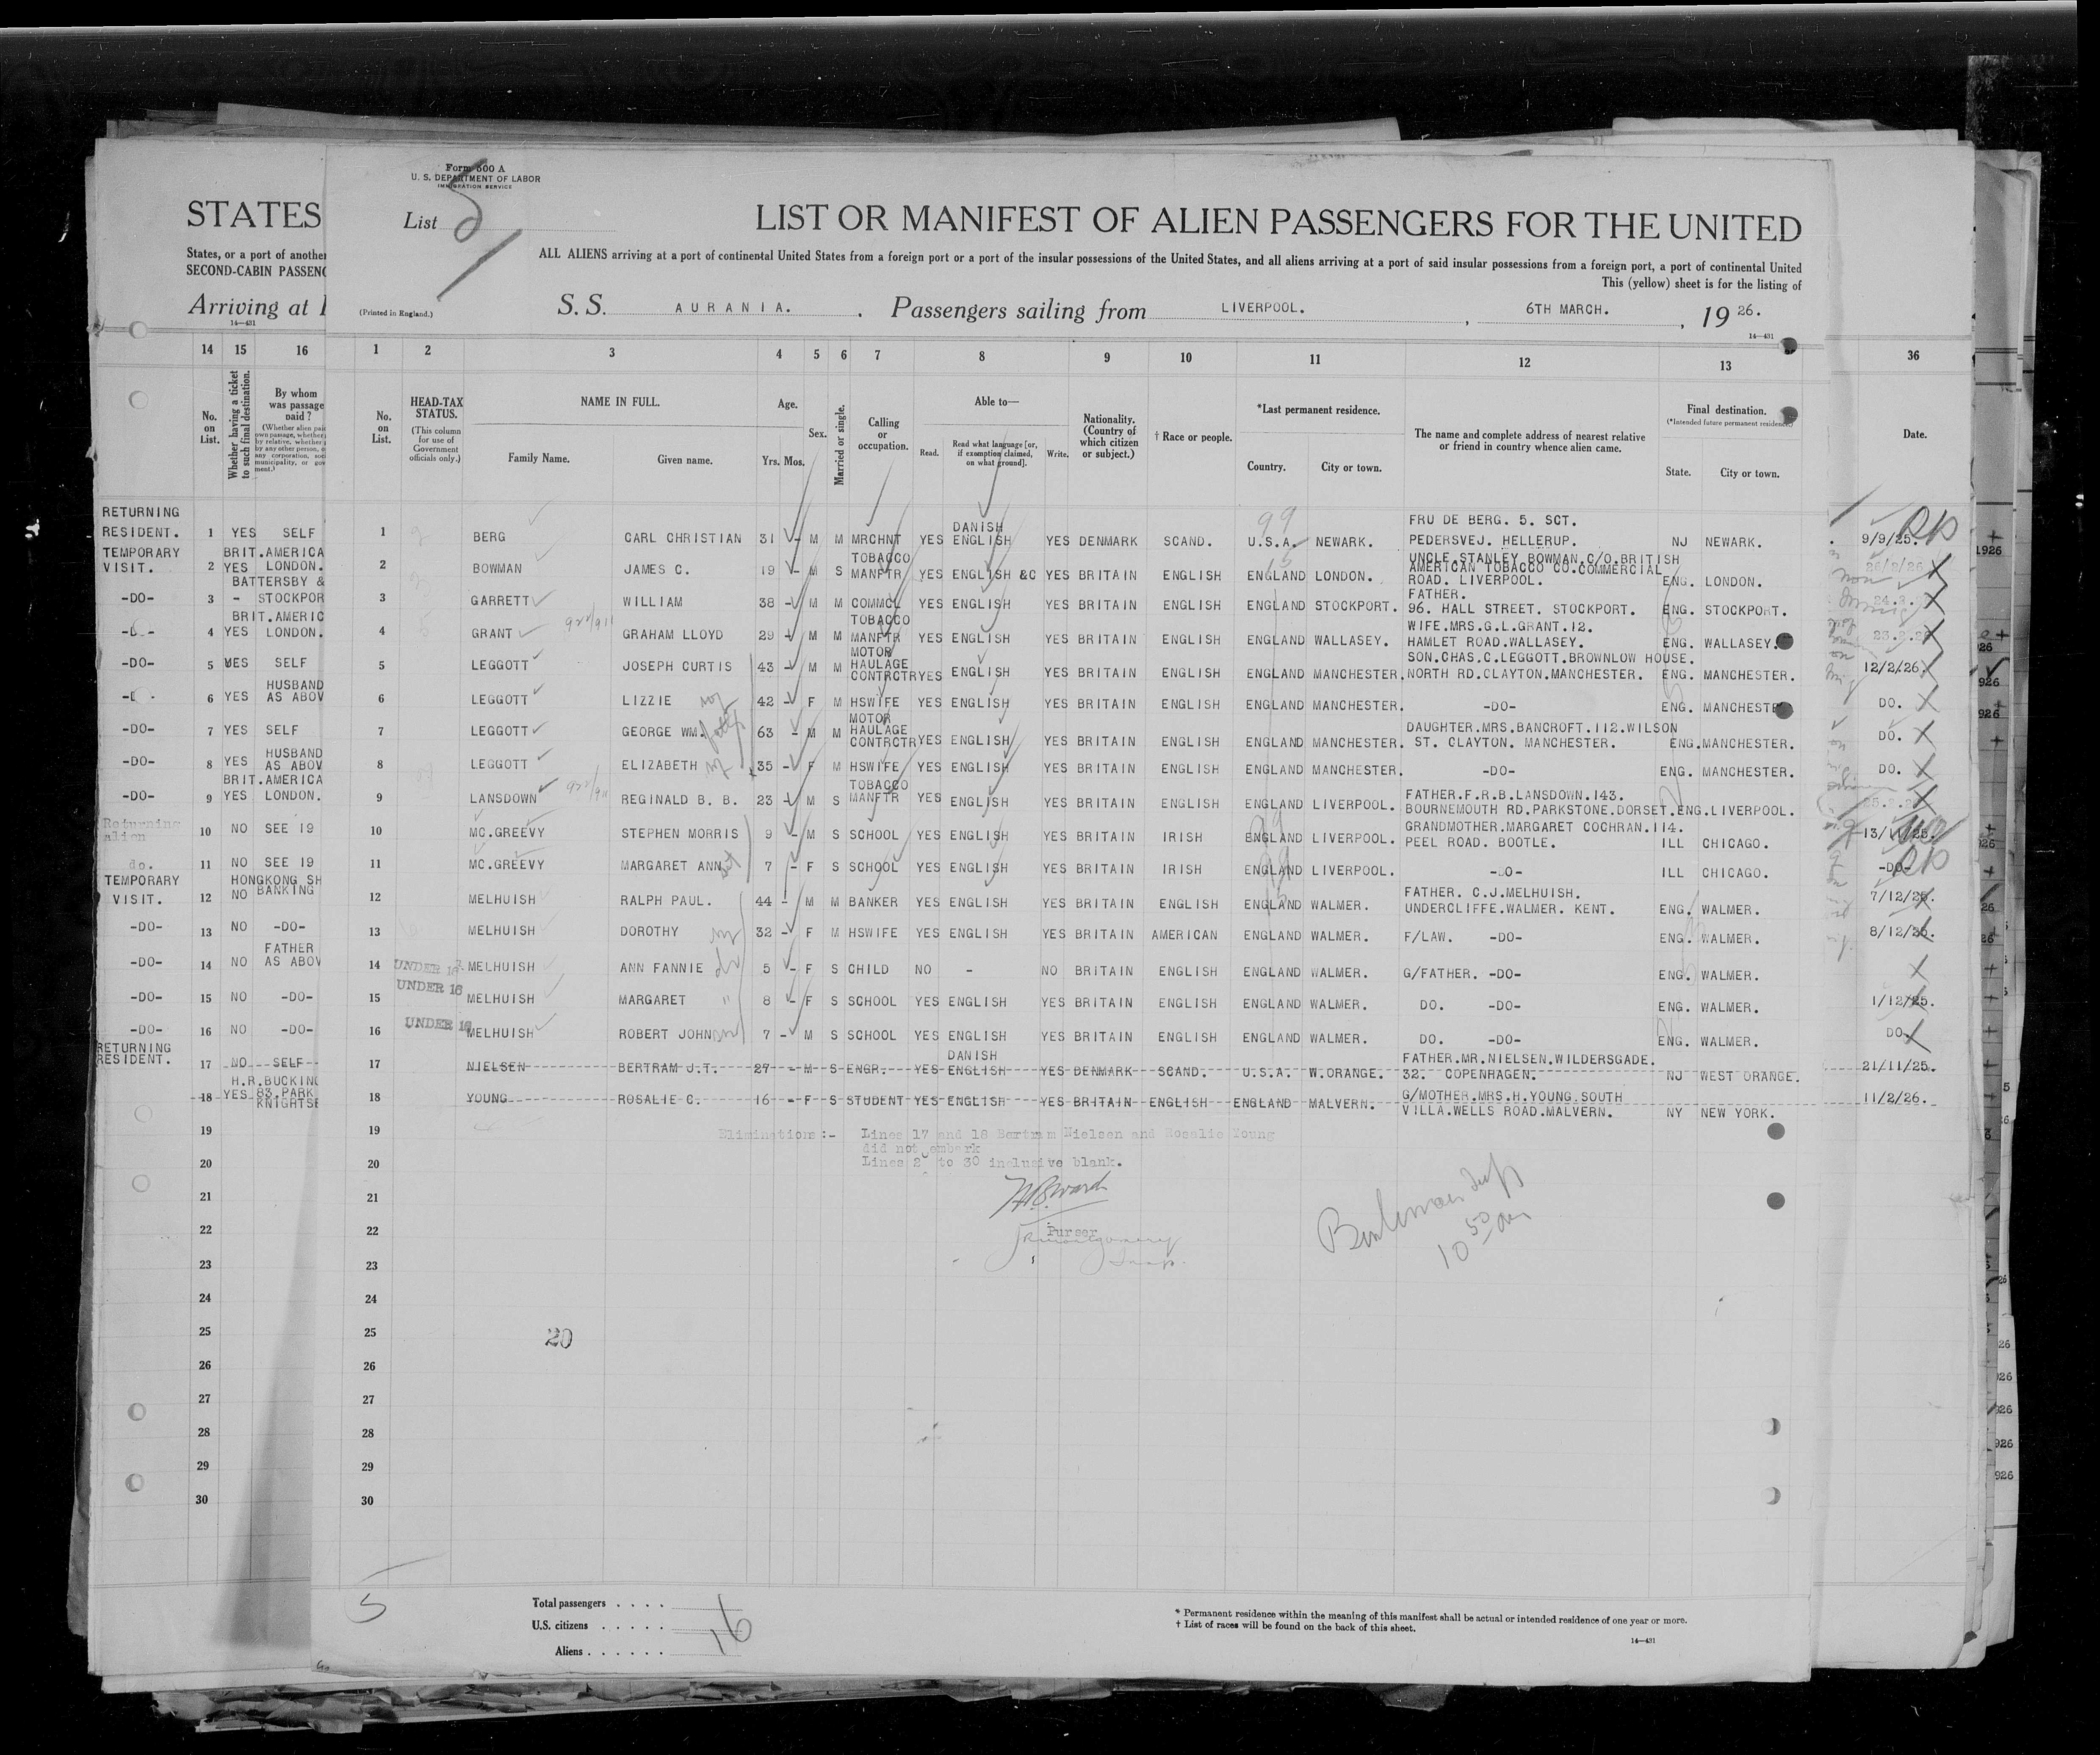 Form 500 A
U. S. DEPARTMENT OF LABOR
IMMIGRATION SERVICE
List 5
STATES
LIST OR MANIFEST OF ALIEN PASSENGERS FOR THE UNITED
States, or a port of another
SECOND-CABIN PASSENG
ALL ALIENS arriving at a port of continental United States from a foreign port or a port of the insular possessions of the United States, and all aliens arriving at a port of said insular possessions from a foreign port, a port of continental United
This (yellow) sheet is for the listing of
Arriving at
14—431
(Printed in England.)
S. S. AURANIA. . Passengers sailing from LIVERPOOL. , 6TH MARCH. , 19 26.
14—431
14 15 16 1 2 3 4 5 6 7 8 9 10 11 12 13 36
No. on List.
Whether having a ticket to such final destination.
By whom was passage paid?
(Whether alien paid own passage, whether by relative, whether by any other person, or any corporation, municipality, or ment.)
No. on List.
HEAD-TAX STATUS.
(This column for use of Government officials only.)
NAME IN FULL.
Family Name. Given name.
Age.
Yrs. Mos.
Sex.
Married or single.
Calling or occupation.
Able to—
Read. Read what language [or, if exemption claimed, on what ground]. Write.
Nationality. (Country of which citizen or subject.)
† Race or people.
*Last permanent residence.
Country. City or town.
The name and complete address of nearest relative or friend in country whence alien came.
Final destination.
(*Intended future permanent residence)
State. City or town.
Date.
RETURNING RESIDENT. 1 YES SELF 1 BERG CARL CHRISTIAN 31 - M M MRCHNT YES DANISH ENGLISH YES DENMARK SCAND. U.S.A. NEWARK. FRU DE BERG. 5. SCT. PEDERSVEJ. HELLERUP. NJ NEWARK. 9/9/25.
TEMPORARY VISIT. 2 YES BRIT.AMERICA LONDON. 2 BOWMAN JAMES C. 19 - M S TOBACCO MANFTR YES ENGLISH &C YES BRITAIN ENGLISH ENGLAND LONDON. UNCLE.STANLEY BOWMAN.C/O.BRITISH AMERICAN TOBACCO CO.COMMERCIAL ROAD. LIVERPOOL. ENG. LONDON. 26/2/26
-DO- 3 - BATTERSBY & STOCKPOR 3 GARRETT WILLIAM 38 - M M COMMCL YES ENGLISH YES BRITAIN ENGLISH ENGLAND STOCKPORT. FATHER. 96. HALL STREET. STOCKPORT. ENG. STOCKPORT.
4 YES BRIT.AMERIC LONDON. 4 GRANT GRAHAM LLOYD 29 - M M TOBACCO MANFTR YES ENGLISH YES BRITAIN ENGLISH ENGLAND WALLASEY. WIFE.MRS.G.L.GRANT.12. HAMLET ROAD.WALLASEY. ENG. WALLASEY.
-DO- 5 YES SELF 5 LEGGOTT JOSEPH CURTIS 43 - M M MOTOR HAULAGE CONTRCTR YES ENGLISH YES BRITAIN ENGLISH ENGLAND MANCHESTER. SON.CHAS.C.LEGGOTT.BROWNLOW HOUSE. NORTH RD.CLAYTON.MANCHESTER. ENG. MANCHESTER. 12/2/26.
6 YES HUSBAND AS ABOV 6 LEGGOTT LIZZIE 42 - F M HSWIFE YES ENGLISH YES BRITAIN ENGLISH ENGLAND MANCHESTER. -DO- ENG. MANCHESTE DO.
-DO- 7 YES SELF 7 LEGGOTT GEORGE WM. 63 - M M MOTOR HAULAGE CONTRCTR YES ENGLISH YES BRITAIN ENGLISH ENGLAND MANCHESTER. DAUGHTER.MRS.BANCROFT.112.WILSON ST. CLAYTON. MANCHESTER. ENG.MANCHESTER. DO.
-DO- 8 YES HUSBAND AS ABOV 8 LEGGOTT ELIZABETH 35 - F M HSWIFE YES ENGLISH YES BRITAIN ENGLISH ENGLAND MANCHESTER. -DO- ENG. MANCHESTER. DO.
-DO- 9 YES BRIT.AMERICA LONDON. 9 LANSDOWN REGINALD B. B. 23 - M S TOBACCO MANFTR YES ENGLISH YES BRITAIN ENGLISH ENGLAND LIVERPOOL. FATHER.F.R.B.LANSDOWN.143. BOURNEMOUTH RD.PARKSTONE.DORSET. ENG.LIVERPOOL.
Returning alien 10 NO SEE 19 10 MC.GREEVY STEPHEN MORRIS 9 - M S SCHOOL YES ENGLISH YES BRITAIN IRISH ENGLAND LIVERPOOL. GRANDMOTHER.MARGARET COCHRAN.114. PEEL ROAD. BOOTLE. ILL CHICAGO. 13/11/25.
do. 11 NO SEE 19 11 MC.GREEVY MARGARET ANN 7 - F S SCHOOL YES ENGLISH YES BRITAIN IRISH ENGLAND LIVERPOOL. -DO- ILL CHICAGO. -DO-
TEMPORARY VISIT. 12 NO HONGKONG SH BANKING 12 MELHUISH RALPH PAUL. 44 - M M BANKER YES ENGLISH YES BRITAIN ENGLISH ENGLAND WALMER. FATHER. C.J.MELHUISH. UNDERCLIFFE.WALMER. KENT. ENG. WALMER. 7/12/25.
-DO- 13 NO -DO- 13 MELHUISH DOROTHY 32 - F M HSWIFE YES ENGLISH YES BRITAIN AMERICAN ENGLAND WALMER. F/LAW. -DO- ENG. WALMER. 8/12/25.
-DO- 14 NO FATHER AS ABOV 14 UNDER 16 MELHUISH ANN FANNIE 5 - F S CHILD NO - NO BRITAIN ENGLISH ENGLAND WALMER. G/FATHER. -DO- ENG. WALMER.
-DO- 15 NO -DO- 15 UNDER 16 MELHUISH MARGARET " 8 - F S SCHOOL YES ENGLISH YES BRITAIN ENGLISH ENGLAND WALMER. DO. -DO- ENG. WALMER. 1/12/25.
-DO- 16 NO -DO- 16 UNDER 16 MELHUISH ROBERT JOHN 7 - M S SCHOOL YES ENGLISH YES BRITAIN ENGLISH ENGLAND WALMER. DO. -DO- ENG. WALMER. DO
RETURNING RESIDENT. 17 NO SELF 17 NIELSEN BERTRAM J.T. 27 - M S ENGR. YES DANISH ENGLISH YES DENMARK SCAND. U.S.A. W.ORANGE. FATHER.MR.NIELSEN.WILDERSGADE. 32. COPENHAGEN. NJ WEST ORANGE. 21/11/25.
18 YES H.R.BUCKING 83.PARK KNIGHTSB 18 YOUNG ROSALIE C. 16 - F S STUDENT YES ENGLISH YES BRITAIN ENGLISH ENGLAND MALVERN. G/MOTHER.MRS.H.YOUNG.SOUTH VILLA.WELLS ROAD.MALVERN. NY NEW YORK. 11/2/26.
19 19 Eliminations:- Lines 17 and 18 Bertram Nielsen and Rosalie Young
did not embark
20 20 Lines 2 to 30 inclusive blank.
21 21
22 22 Purser
23 23
24 24
25 25 20
26 26
27 27
28 28
29 29
30 30
10 50 am
5
Total passengers . . . .
U.S. citizens . . . . . .
Aliens . . . . . . 16
* Permanent residence within the meaning of this manifest shall be actual or intended residence of one year or more.
† List of races will be found on the back of this sheet.
14—431